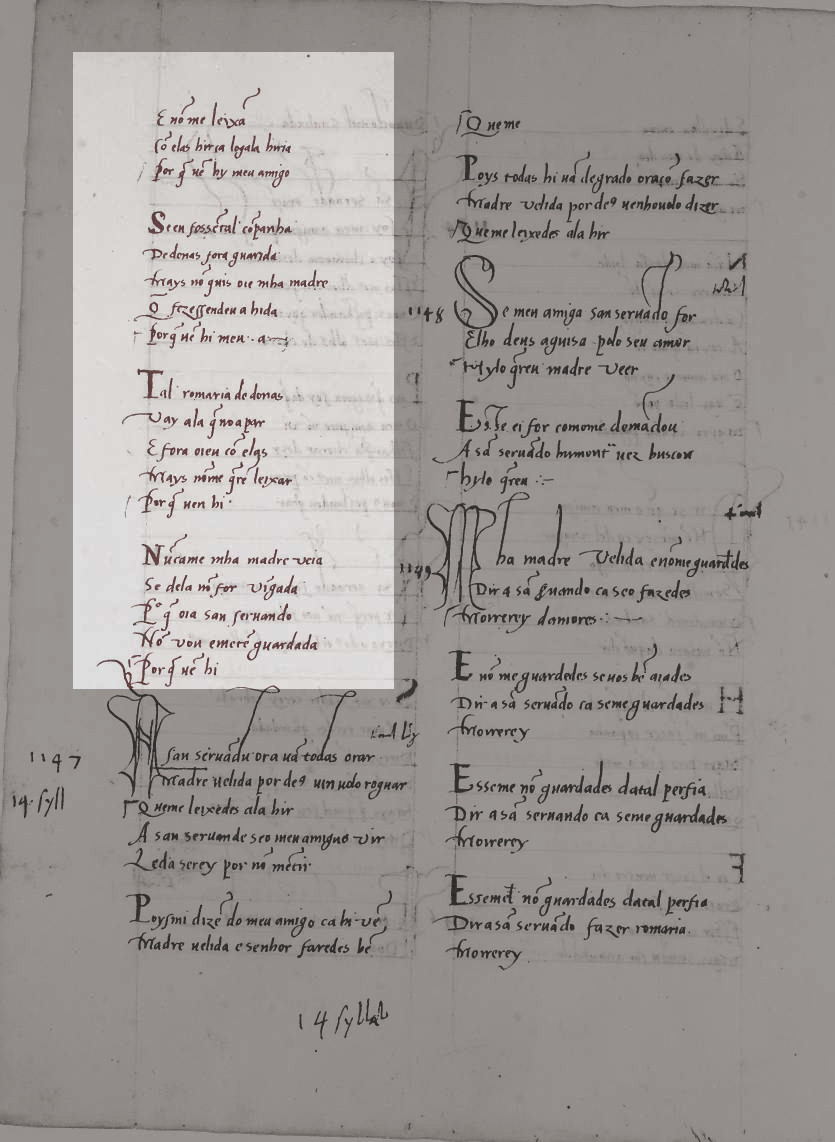 E nō me leixā
Cō elas hir ca logala hiria
Por q̄ uē hy meu amigo
Se eu fosse tal cōpanha
De donas fora guarida
Mays nō quis oie mha madre
Q̄ fezessendeu a hida
Porq̄ uē hi meu . a
Tal romaria de donas
Vay ala q̄ nō a par
E fora oieu cō elas
Mays nōme q̄rē leixar
Por q̄ uen hi
Nūca me mha madre veia
Se dela nō for vīgada
Por q̄ oia san seruando
Nō vou e me tē guardada
Por q̄ uē hi
1147
14. syll
A san seruādu ora uā todas orar
Madre uelida por de9 uin uolo roguar
Que me leixedes ala hir
A san seruando se o meu amiguo vir
Leda serey por nō mētir
Poys mi dizē do meu amigo ca hi uē
Madre uelida e senhor faredes bē
14 syllab
Que me
Poys todas hi uā de grado oraçō fazer
Madre uelida por de9 uenhouolo dizer
Que me leixedes ala hir
1148
Se meu amiga san seruādo for
E lho deus aguisa polo seu amor
Hylo q̄reu madre veer
E sse el for comome demādou
A sā seruādo hu mont uez buscou
hylo q̄reu
1149
Mha madre velida e nōme guardedes
Dir a sā seruando ca se o fazedes
Morrerey damores
E nō me guardedes se uos bē aiades
Dir a sā seruādo ca se me guardades
Morrerey
E sseme nō guardades datal perfia
Dir a sā seruando ca se me guardades
Morrerey
E sseme nō guardades datal perfia
Dir a sā seruādo fazer romaria.
Morrerey